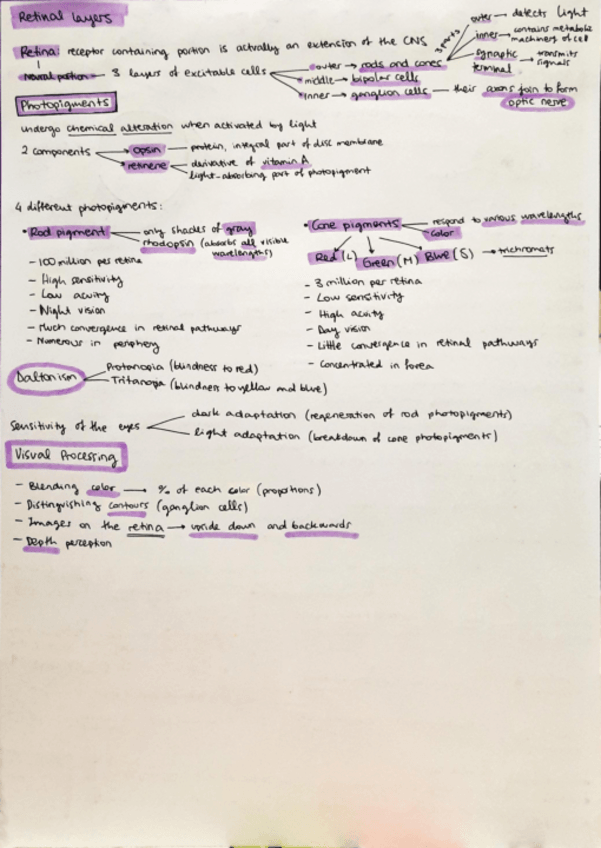 Retinal layers
Retina: receptor containing portion is actually an extension of the CNS
Neural portion — 3 layers of excitable cells
outer → rods and cones
middle → bipolar cells
inner → ganglion cells — their axons join to form
optic nerve
3 parts
outer → detects light
inner → contains metabolic
machinery of cell
synaptic
terminal → transmits
signals
Photopigments
undergo chemical alteration when activated by light
2 components
opsin — protein, integral part of disc membrane
retinene
derivative of vitamin A
light-absorbing part of photopigment
4 different photopigments:
• Rod pigment
only shades of gray
rhodopsin (absorbs all visible
wavelengths)
- 100 million per retina
- High sensitivity
- Low acuity
- Night vision
- Much convergence in retinal pathways
- Numerous in periphery
• Cone pigments
respond to various wavelengths
color
Red (L) Green (M) Blue (S) → trichromats
- 3 million per retina
- Low sensitivity
- High acuity
- Day vision
- Little convergence in retinal pathways
- Concentrated in fovea
Daltonism
Protanopia (blindness to red)
Tritanopa (blindness to yellow and blue)
Sensitivity of the eyes
dark adaptation (regeneration of rod photopigments)
light adaptation (breakdown of cone photopigments)
Visual Processing
- Blending color → % of each color (proportions)
- Distinguishing contours (ganglion cells)
- Images on the retina → upside down and backwards
- Depth perception